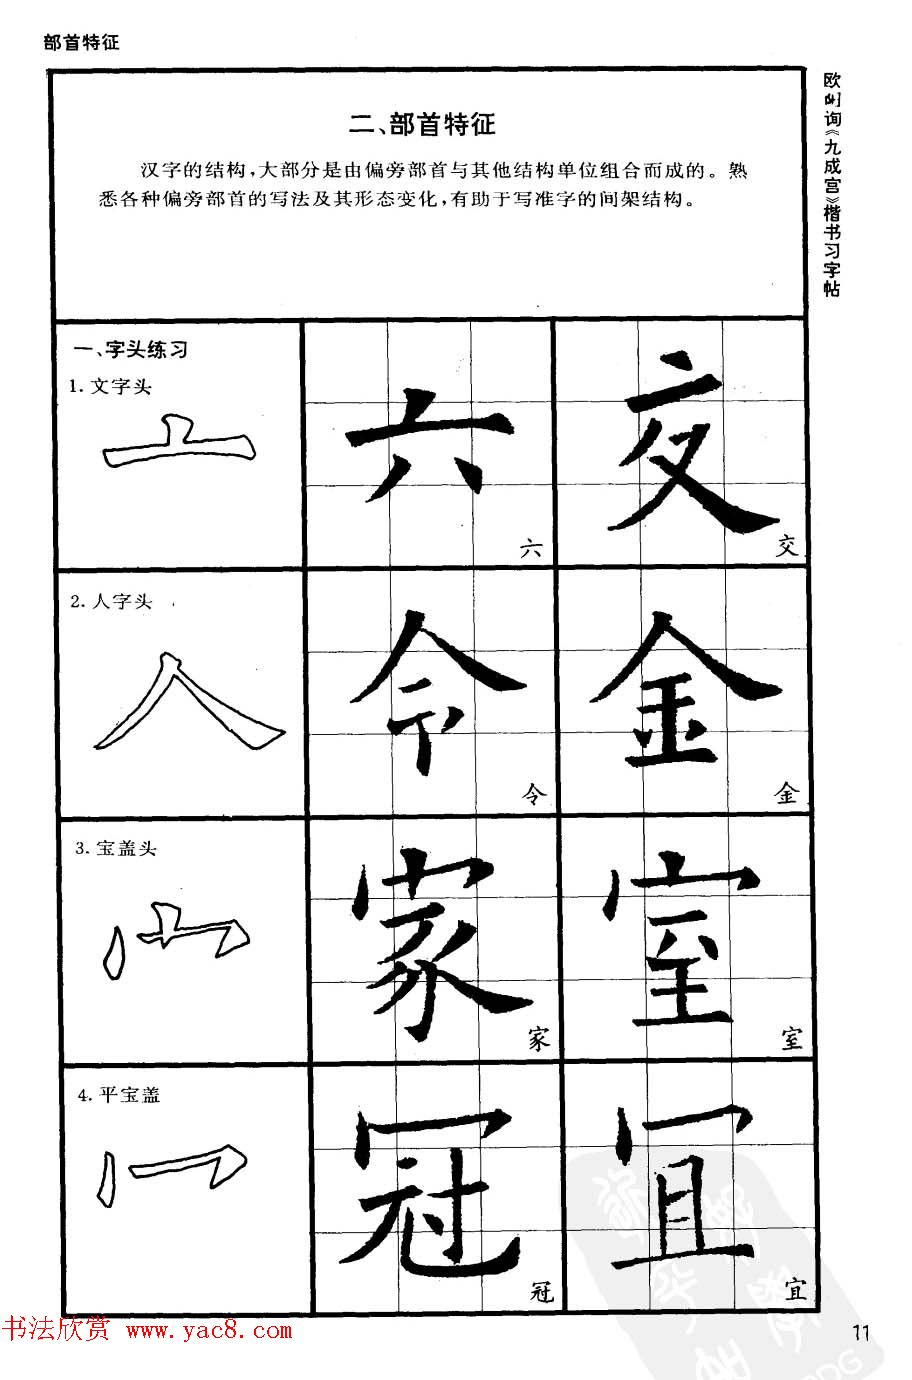 部首特征
欧阳询《九成宫》楷书习字帖
二、部首特征
汉字的结构,大部分是由偏旁部首与其他结构单位组合而成的。熟
悉各种偏旁部首的写法及其形态变化,有助于写准字的间架结构。
一、字头练习
1. 文字头
亠
六
六
交
交
2. 人字头
人
令
令
金
金
3. 宝盖头
宀
家
家
室
室
4. 平宝盖
冖
冠
冠
冝
宜
书法欣赏 www.yac8.com
11